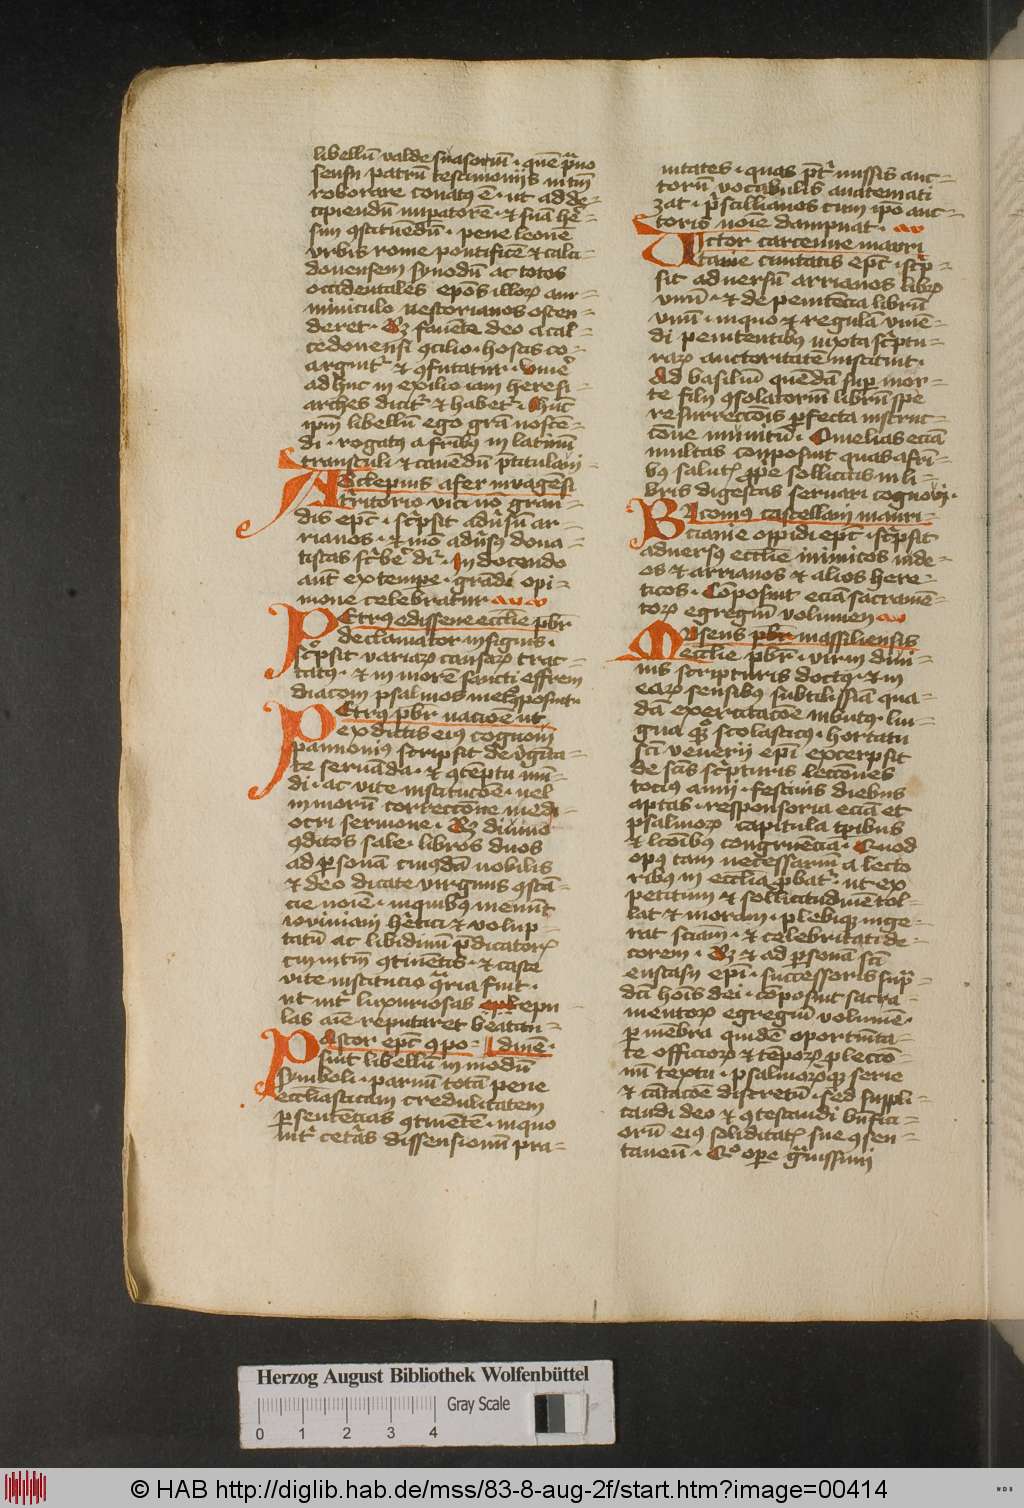 libellū valde suasoriū · quē p̄uno
sensu patrū testimonijs intm̄
roborare conatꝰ ē · ut ad de=
cipiendū inpatorē · ⁊ suā hē=
sim ꝯstituedū · pene leonē
vrbis rome pontificē ⁊ calci=
donensem synodū ac totos
occidentales epōs illorꝝ am=
miniculo nestorianos osten=
deret · Sꝫ fauēte deo a cal=
cedonensi ꝯcilio · hostis eo=
arguit᷑ ⁊ ꝯfutatur · viuē
ad huc in exilio iam heresi=
arches dicit᷑ ⁊ habet᷑ · hūc
ipm̄ libellū ego grā noscē=
di · rogatꝰ a fribꝰ in latinū
transtuli ⁊ cauēdū p̄titulaui=
ASclepius afer in vagēsi
t᷑ritorio vici nō gran=
dis epc̄ · sc͛psit adu͛sū ar=
rianos · ⁊ mō adu͛sꝰ dona=
tistas sc͛be͛ dr̄ · In docendo
aut̄ extempe · grādi opi=
nione celebratur
PEtrus edissene ecclīe pbr̄
declamator insignis ·
sc͛psit variarꝝ causarꝝ trac=
tatꝰ · ⁊ in morē sancti effrem
diaconi psalmos met᷑ꝯposuit·
PEtrꝰ pbr̄ nacioē ut
ex dictis eiꝰ cognoui
pannonius scripsit de v͛gīta=
te seruāda · ⁊ ꝯtēptu mū=
di · ac vite institucōe · uel
in morū correccōne medi=
ocri sermone · Sꝫ diuino
ꝯditos sale · libros duos
ad ꝑsonā cuiꝰdā nobilis
⁊ deo dicate virginis ꝯstā=
cie noīe · in quibꝰ meminīt
iouiniani he͛tici ⁊ volup=
tatū ac libidinū p̄dicatorꝭ
cui intm̄ ꝯtinētis · ⁊ caste
vite institucio ꝯt͛ria fuit ·
ut int᷑ luxuriosas epul epu=
las aīe reputaret beatitu=
PAstor epc̄ ꝯpo- | dinē ·
suit libellū in modū
symboli · paruū totā pene
ecclīasticam credulitatem
ꝑ sentēcias ꝯtinētē · in quo
int᷑ cete͛as dissensionū pra=
uitates · quas pt᷑ missis auc=
torū vocabulis anatemati
zat · p͛scillianos cum ipō auc=
toris noīe dampnat ·
VIctor cartenne mauri
tanie ciuitatis epc̄ · sc͛p=
sit aduersū arrianos librꝭ
vnū · ⁊ de penitēcia librū
vnū · in quo ⁊ regulā viuē=
di penitentibꝰ iuxta sc͛ptu=
rarꝝ auctoritatē instituit ·
Ad basiliū quēdā sup mor=
te filij ꝯsolatoriū librū spe
resurrecciōis ꝑfecta instruc=
cōne munitū · Omelias eciā
multas conposuit quas a fri=
bꝰ salutꝭ ꝓpe sollicitis in li=
bris digestas seruari cognoui ·
BIconiꝰ castellani mauri=
tanie oppidi epc̄ · sc͛psit
aduersꝰ ecclīe inimicos iude=
os ⁊ arrianos ⁊ alios here=
ticos · Cōposuit eciā sacramē=
torꝝ egregiū volumen
MUseus pbr̄ massiliensis
ecclīe pbr̄ · vir in diui=
nis scripturis doctꝰ · ⁊ in
earꝝ sensibꝰ subtilissīa qua=
dā exercitacōe inbutus · lin=
gua quoꝗ scolasticꝰ · hortatu
scī venerij epī excerpsit
de scīs sc͛pturis lecciōnes
tocius anni · festiuis diebus
aptas · responsoria eciā et
psalmorꝝ capitula tp̄ibus
⁊ lcōibꝰ congruēcia · Quod
opꝰ tam necessariū a lecto
ribꝰ in ecclīa ꝓbat᷑ · ut ex
petitum ⁊ sollicitudinē tol=
lat ⁊ moram · plebiqꝫ inge=
rat sciam · ⁊ celebritati de=
corem · Sꝫ ⁊ ad ꝑsonā scī
eustasij epī · successoris sup͛=
dc̄i hoīs dei · cōposuit sacra=
mentorꝝ egregiū volumē ·
ꝑ mēbra quidē oportūita=
te officiorꝝ ⁊ tēporꝝ p leccō=
nū textu · psalmorꝝqꝫ serie
⁊ cātacōe discretū · sed suppli=
candi deo ⁊ ꝯtestandi bn̄fici=
orū eiꝰ soliditatꝭ sue ꝯsen=
taneū · Quo ope g͛uissimi
Herzog August Bibliothek Wolfenbüttel
Gray Scale
0 1 2 3 4
© HAB http://diglib.hab.de/mss/83-8-aug-2f/start.htm?image=00414